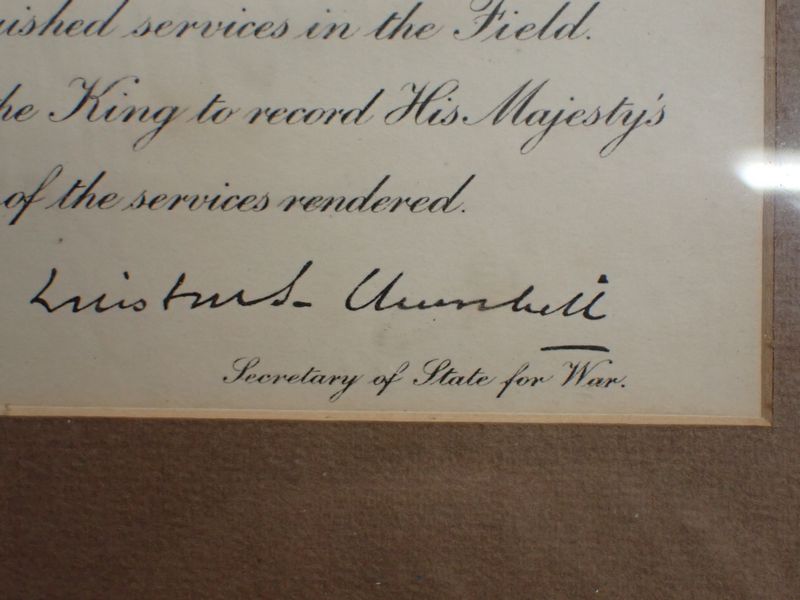 ished services in the Field.
he King to record His Majesty's
of the services rendered.
Winston S. Churchill
Secretary of State for War.